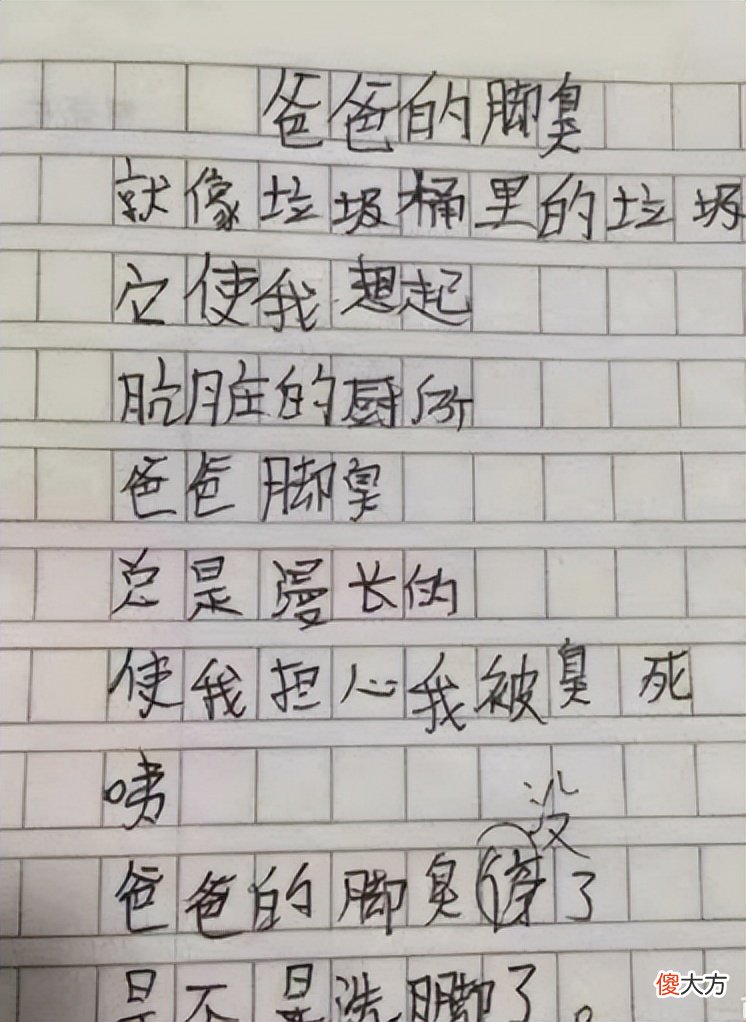 爸爸的脚臭
就像垃圾桶里的垃圾
它使我想起
肮脏的厨所
爸爸脚臭
总是漫长的
使我担心我被臭死
咦
没
爸爸的脚臭停了
是不是洗脚了。
傻大方